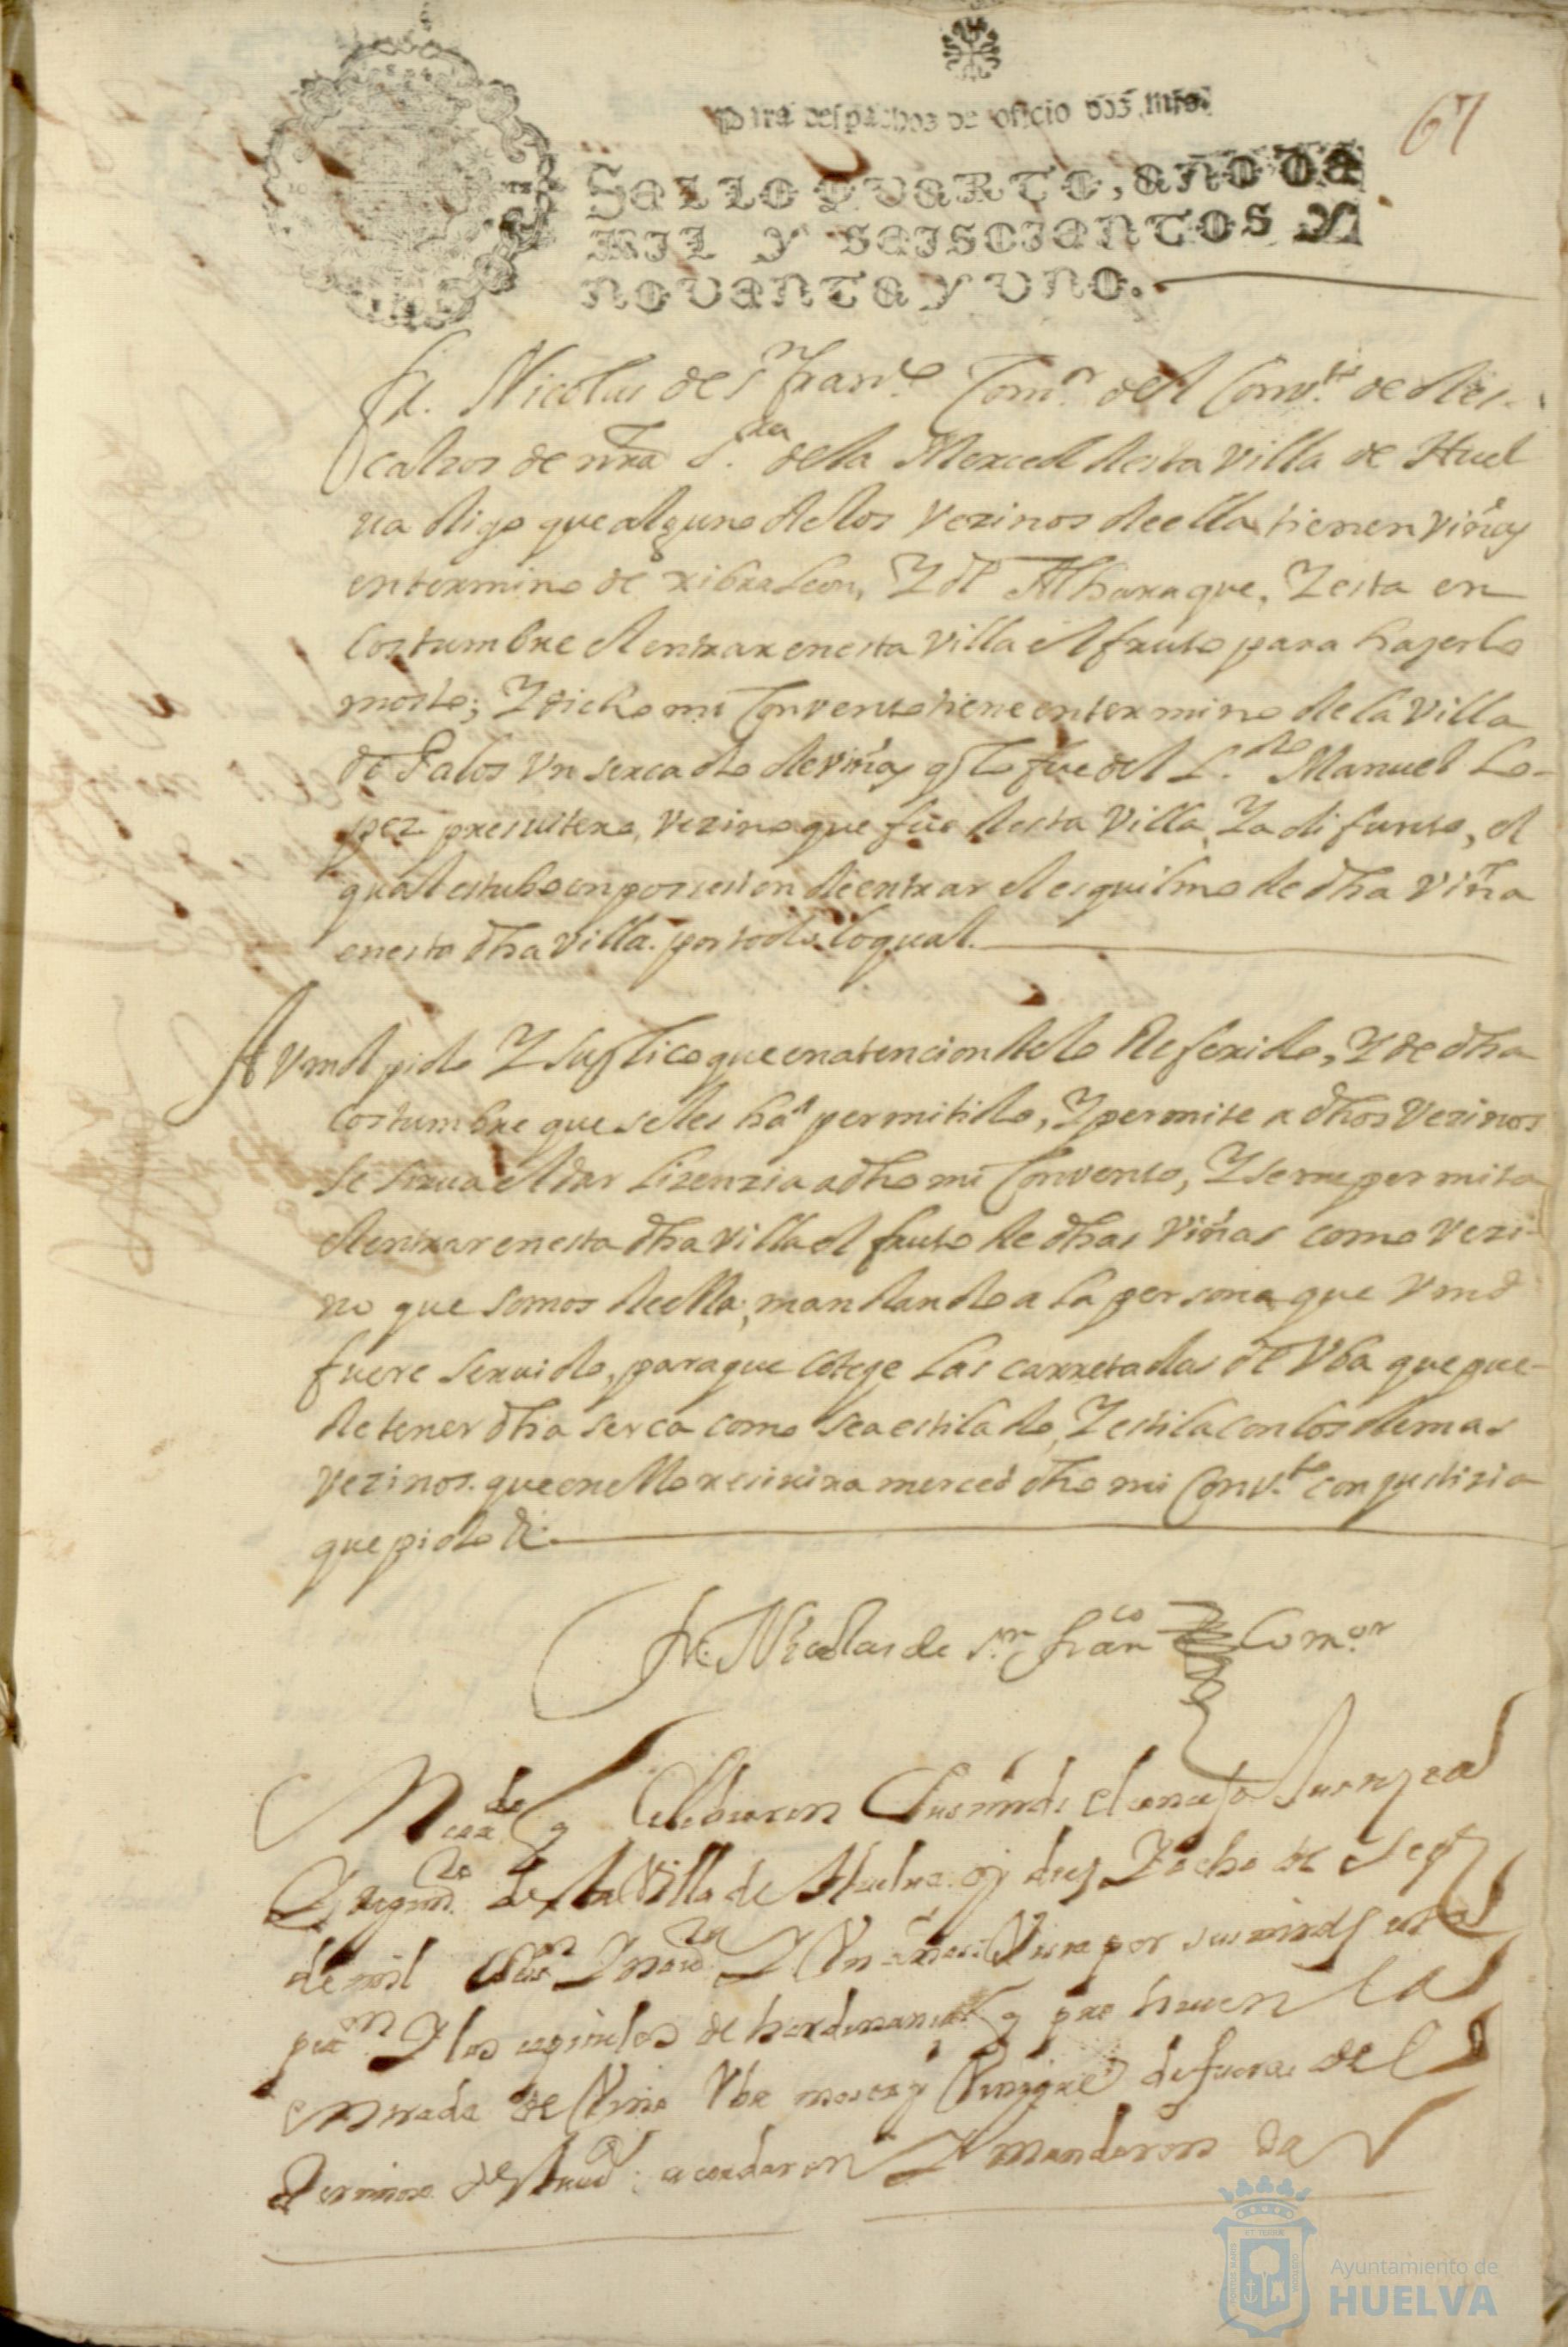 Para despachos de oficio dos mrs.
67
SELLO QVARTO, AÑO DE
MIL Y SEISCIENTOS Y
NOVENTA Y VNO.
fr. Nicolas de Sn. Franco Comor del Convto de des-
calzos de nra Sra de la Merced desta villa de Huel
va digo que alguno de los vezinos de ella tienen viñas
en termino de xibraleon, Y de Alharaque, Y esta en
costumbre el entrar en esta villa el fruto para hazerlo
mosto; Y dicho mi Convento tiene en termino de la villa
de Palos vn sercado de viñas q fue del Ldo Manuel Lo-
pez presuitero, vezino que fue desta villa, Ya difunto, el
qual estubo en possesion de entrar el esquilmo de dha viña
en esta dha villa. por todo lo qual.
A Vmd pido Y suplico que en atencion de lo Referido, Y de dha
costumbre que se les ha permitido, Y permite a dhos vezinos
se sirva el dar lizenzia a dho mi Convento, Y se me permita
el entrar en esta dha villa el fruto de dhas viñas como vezi-
no que somos de ella, mandando a la persona que Vmd
fuere servido, para que coteje las carretadas de Vba que pue-
de tener dha serca como se a estilado, Y estila con los demas
vezinos. que en ello resivira merced dho mi Convto con justizia
que pido &
Fr. Nicolas de Sn francо Comor
Zelebraron sus mrds el conсejo Justizia
Y regimto desta Villa de Huelva en dies Y ocho de Sep
de mil Y Vn años Vista por sus mrds esta
peton Y los capitulos de hordenanzas q prohiven la
entrada de Vino Vba mosto y Vinagre de fuera del
termino acordaron Y mandaron
Ayuntamiento de
HUELVA